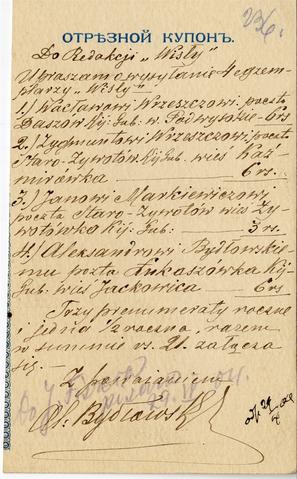 236.
ОТРѢЗНОЙ КУПОНЪ.
Do Redakcji „Wisły”
Upraszam o wysyłanie 4 egzem-
plarzy „Wisły”
1.) Wacławowi Wrzeszczowi poczta
Daszów Kij. Gub. w. 6 rs
2.) Zygmuntowi Wrzeszczowi poczt
Staro-Żywotów Kij. Gub. wieś Kaź-
mirówka 6 rs.
3.) Janowi Markiewiczowi
poczta Staro-Żywotów wieś Ży-
wotówka Kij. Gub: 3 rs.
4.) Aleksandrowi Bydłowskie-
mu poczta Łukaszówka Kij.
Gub. wieś Jackowica 6 rs
Trzy prenumeraty roczne
i jedna 1/2 roczna, razem
w summie rs. 21. załącza
się.
Z poważaniem
Al: Bydłowski